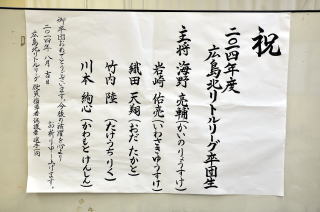 祝
二〇一四年度
広島北リトルリーグ卒団生
主将 海野 亮輔(かいのりょうすけ)
岩崎 佑亮(いわさきゆうすけ)
織田 天翔(おだ たかと)
竹内 陸(たけうち りく)
川本 絢心(かわもと けんしん)
御卒団おめでとうございます。今後の活躍を心より
お祈り申し上げます。
二〇一四年 八月 吉日
広島北リトルリーグ 役員 指導者 保護者 選手一同